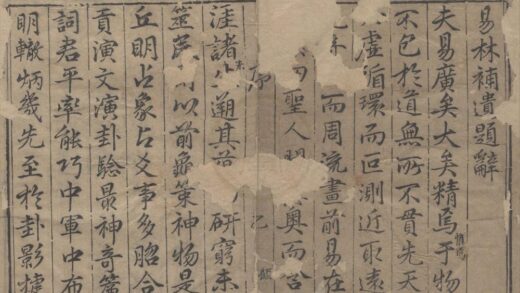 易林補遺題辭
夫易廣矣大矣精焉于物
不包於道無所不貫先天
虛循環而叵測近取遠
而周流畫前易在
聖人奧而合
序
涯諸遡其研窮未
筮以前龜策神物是
丘明占象占爻事多昭合
貢演文演卦驗最神奇
詞君平率能巧中軍中布
明轍炳幾先至於卦影